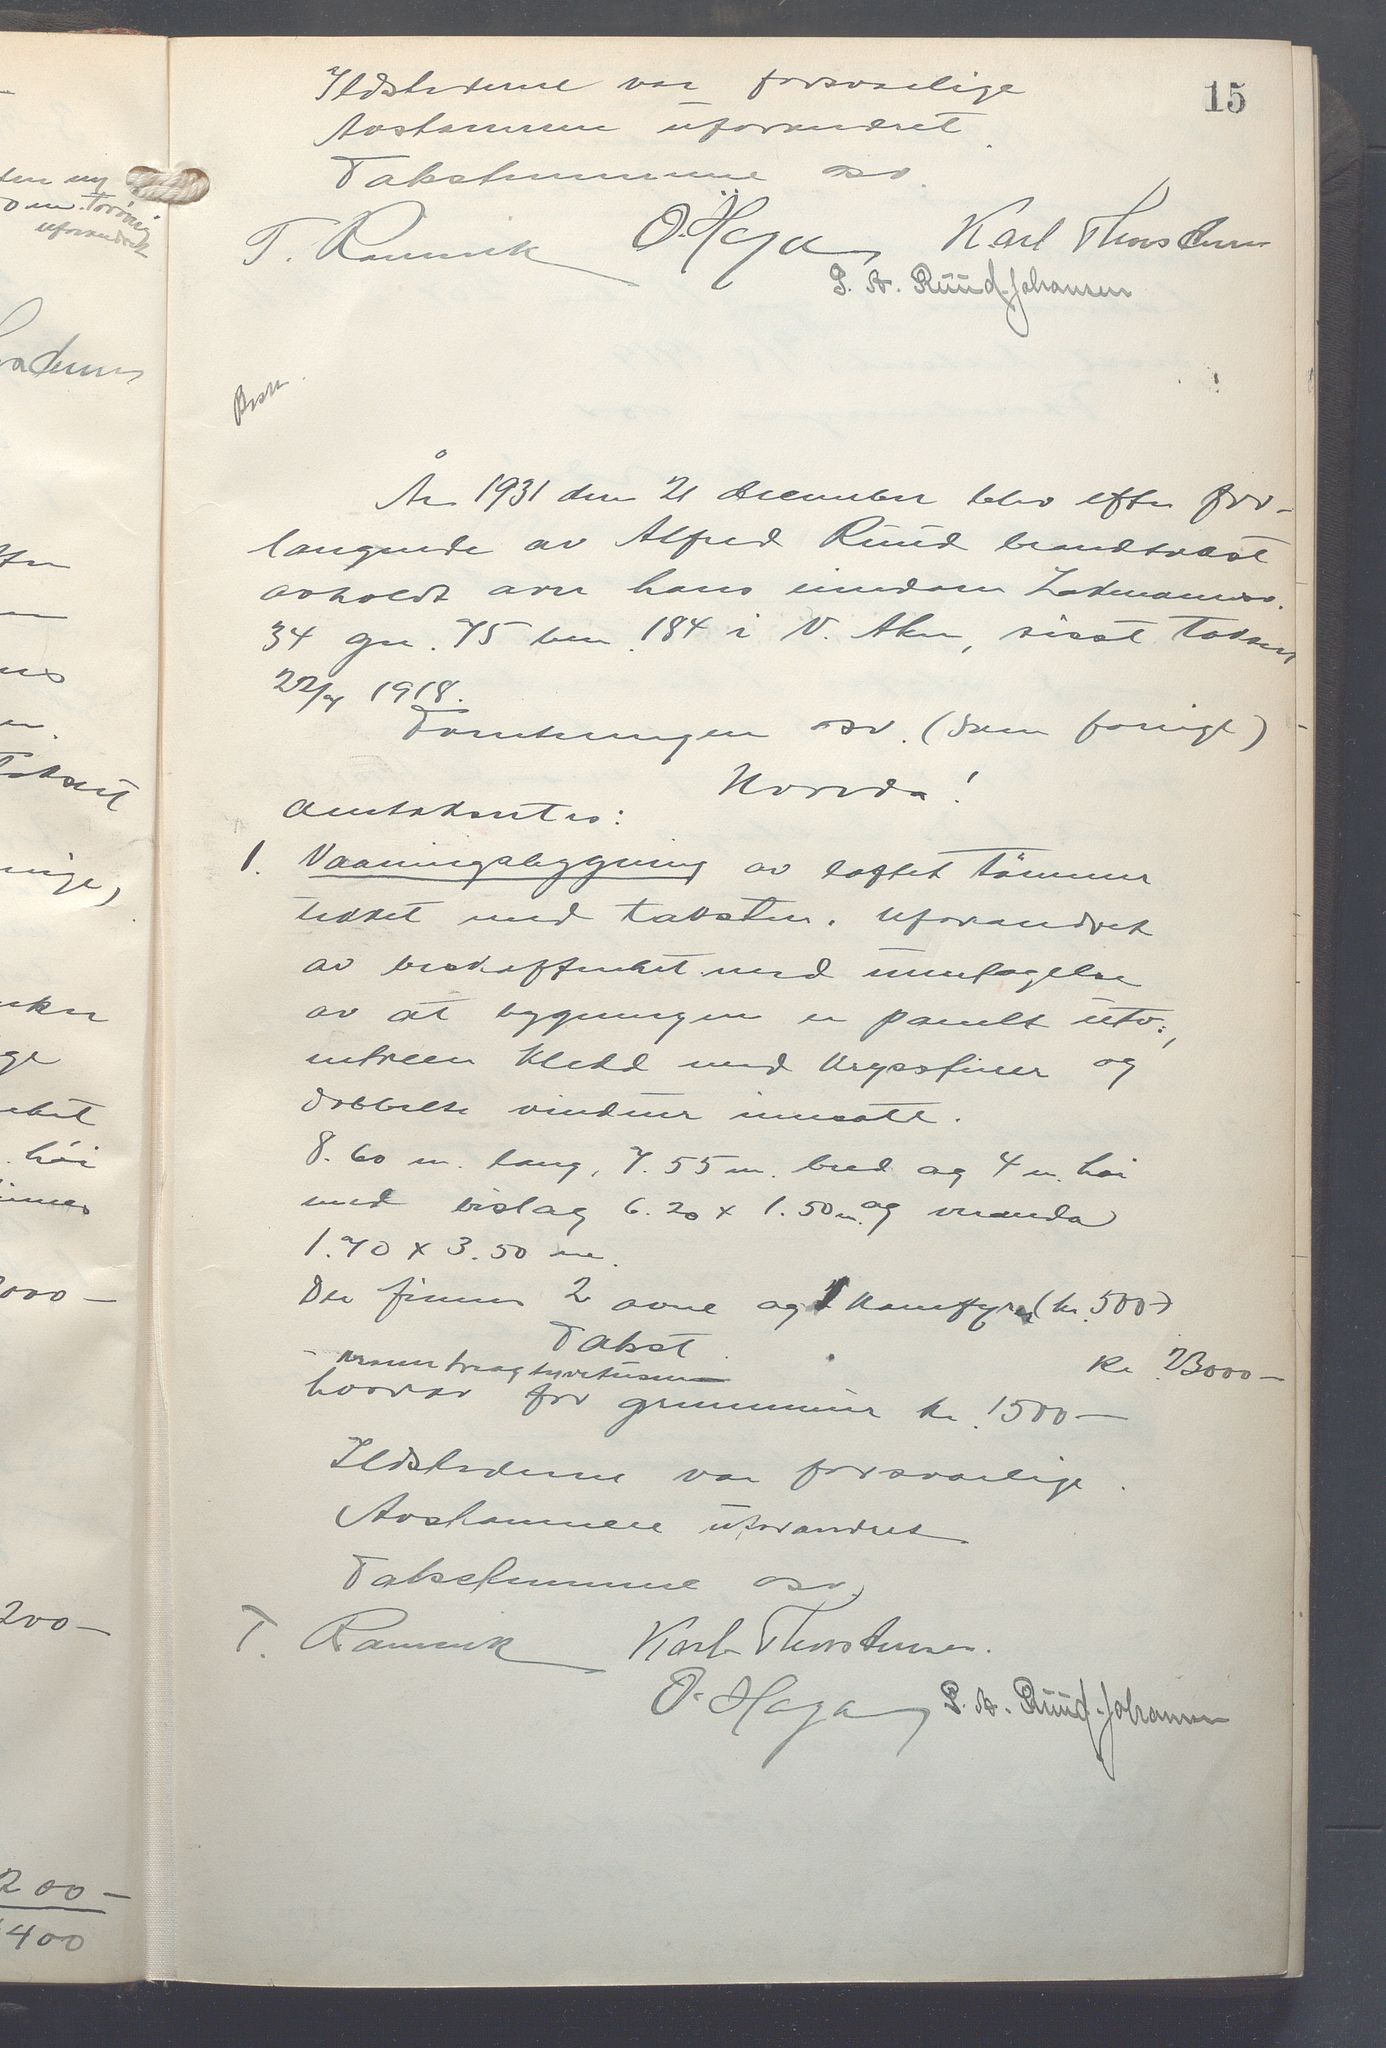 15
Ildstederne var forsvarlige
Avstannene uforandret.
Takstummene osv.
T. Ramvik O. Haga Karl Thorstensen
P. A. Ruud-Johansen
År 1931 den 21 december blev efter for-
langende av Alfred Ruud brandtakst
avholdt over hans eiendom
34 gnr. 75 bnr. 184 i V. Aker, sisst takser
22/4 1918.
Forretningen osv. (som forrige)
Hvorda!
1. Vaaningsbygning av loftet tömmer
tekket med taksten. Uforandret
av beskaffenhet med unntagelse
av at bygningen er panelt utv.,
entreen kledd med kryssfiner og
dobbelte vinduer innsatt.
8.60 m. lang, 7.55 m. bred og 4 m. høi
med bislag 6.20 x 1.50 m. og veranda
1.70 x 3.50 m.
Der finnes 2 ovne og 1 komfyr (kr. 500-)
Takst
kr. 23000-
hvorav for grunnmur kr. 1500-
Ildstederne var forsvarlige.
uforandret
osv.
T. Ramvik Karl Thorstensen.
O. Haga P. A. Ruud-Johansen
uforandret
høi
000-
200-
200-
400